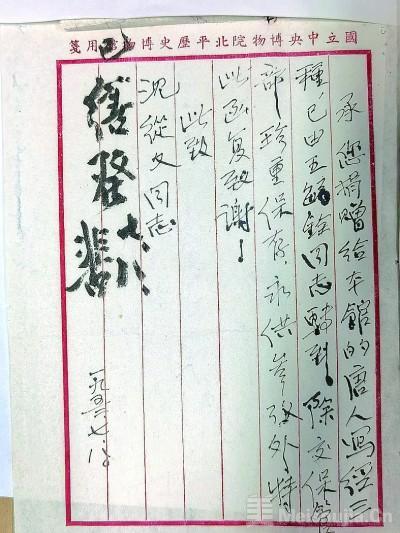 國立中央博物院北平歷史博物館用箋
承您捐贈給本館的唐人寫經三
種,已由王同志轉到,除交保管
部珍重保存,永供參外,特
此函复致謝!
此致
沈從文同志
已
繕發
一九五三.七.八